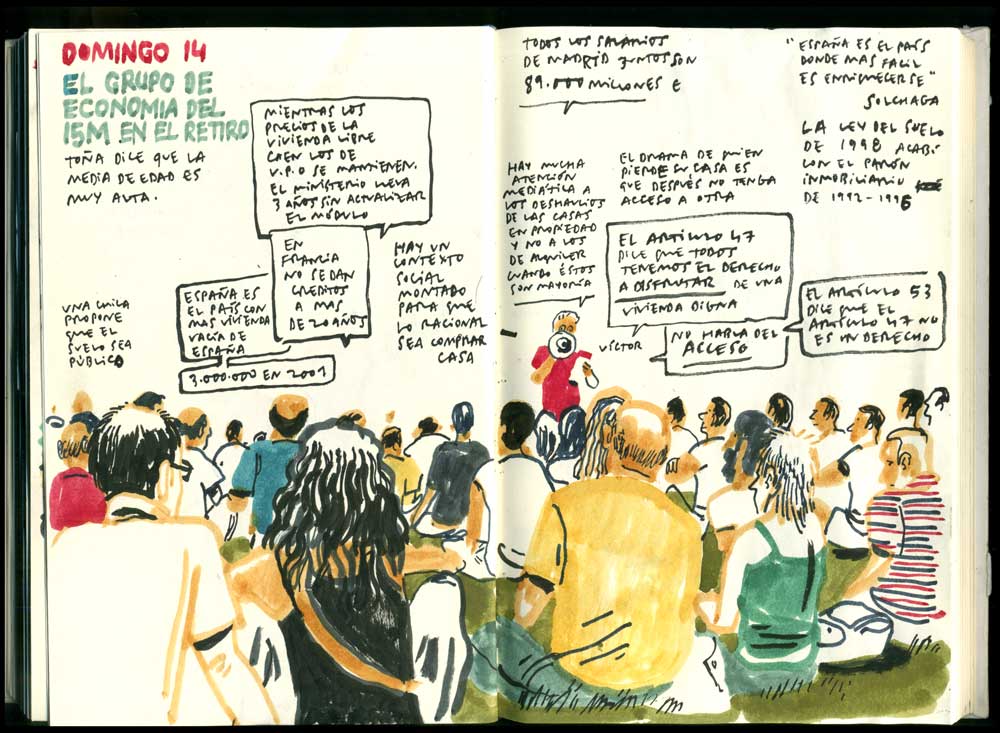 DOMINGO 14
EL GRUPO DE
ECONOMIA DEL
15M EN EL RETIRO
TOÑA DICE QUE LA
MEDIA DE EDAD ES
MUY ALTA.
MIENTRAS LOS
PRECIOS DE LA
VIVIENDA LIBRE
CAEN LOS DE
V.P.O SE MANTIENEN.
EL MINISTERIO LLEVA
3 AÑOS SIN ACTUALIZAR
EL MÓDULO
EN
FRANCIA
NO SE DAN
CREDITOS
A MAS
DE 20 AÑOS
HAY UN
CONTEXTO
SOCIAL
MONTADO
PARA QUE
LO RACIONAL
SEA COMPRAR
CASA
UNA CHICA
PROPONE
QUE EL
SUELO SEA
PÚBLICO
ESPAÑA ES
EL PAÍS CON
MAS VIVIENDA
VACÍA DE
ESPAÑA
3.000.000 EN 2001
TODOS LOS SALARIOS
DE MADRID JUNTOS SON
89.000 MILLONES €
"ESPAÑA ES EL PAÍS
DONDE MAS FACIL
ES ENRIQUECERSE"
SOLCHAGA
LA LEY DEL SUELO
DE 1998 ACABÓ
CON EL PARÓN
INMOBILIARIO
DE 1992-1996
HAY MUCHA
ATENCIÓN
MEDIÁTICA A
LOS DESHAUCIOS
DE LAS CASAS
EN PROPIEDAD
Y NO A LOS
DE ALQUILER
CUANDO ÉSTOS
SON MAYORÍA
EL DRAMA DE QUIEN
PIERDE SU CASA ES
QUE DESPUÉS NO TENGA
ACCESO A OTRA
EL ARTÍCULO 47
DICE QUE TODOS
TENEMOS EL DERECHO
A DISFRUTAR DE UNA
VIVIENDA DIGNA
VÍCTOR
NO HABLA DEL
ACCESO
EL ARTÍCULO 53
DICE QUE EL
ARTÍCULO 47 NO
ES UN DERECHO